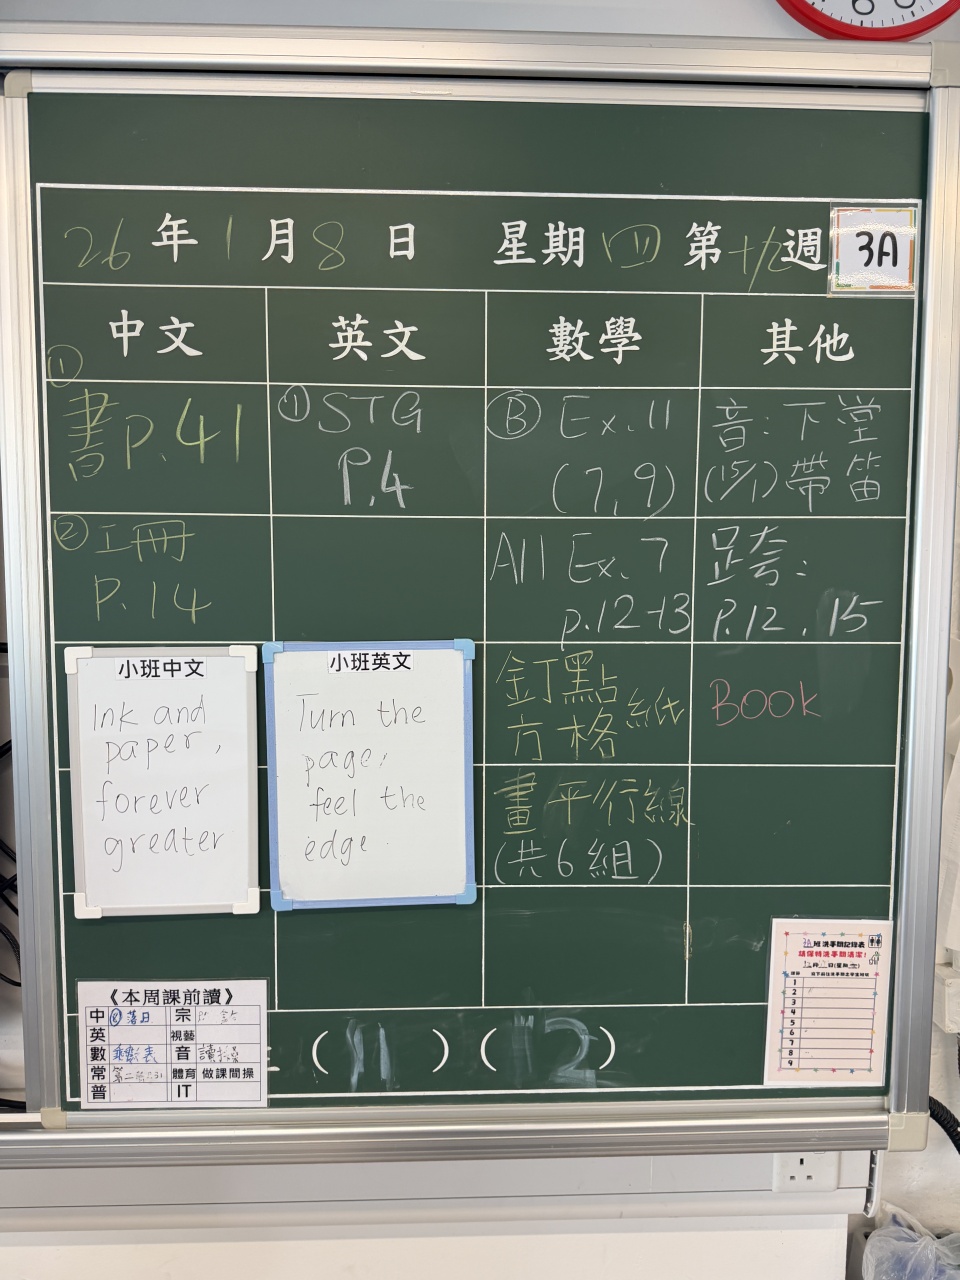 26年1月8日 星期四 第十九週 3A
中文 英文 數學 其他
① 書P.41
② 工冊
P.14
① STG
P.4
Ⓑ Ex.11
(7, 9)
All Ex. 7
p.12-13
釘點
方格紙
畫平行線
(共6組)
音:下堂
(15/1)帶笛
P.12, 15
BOOK
小班中文
Ink and
paper,
forever
greater
小班英文
Turn the
page,
feel the
edge.
《本周課前讀》
中 落日 宗
英 視藝
數 乘數表 音
常 體育 做課間操
普 IT
(11) (12)
3A班洗手間記錄表
請保持洗手間清潔!
1
2
3
4
5
6
7
8
9